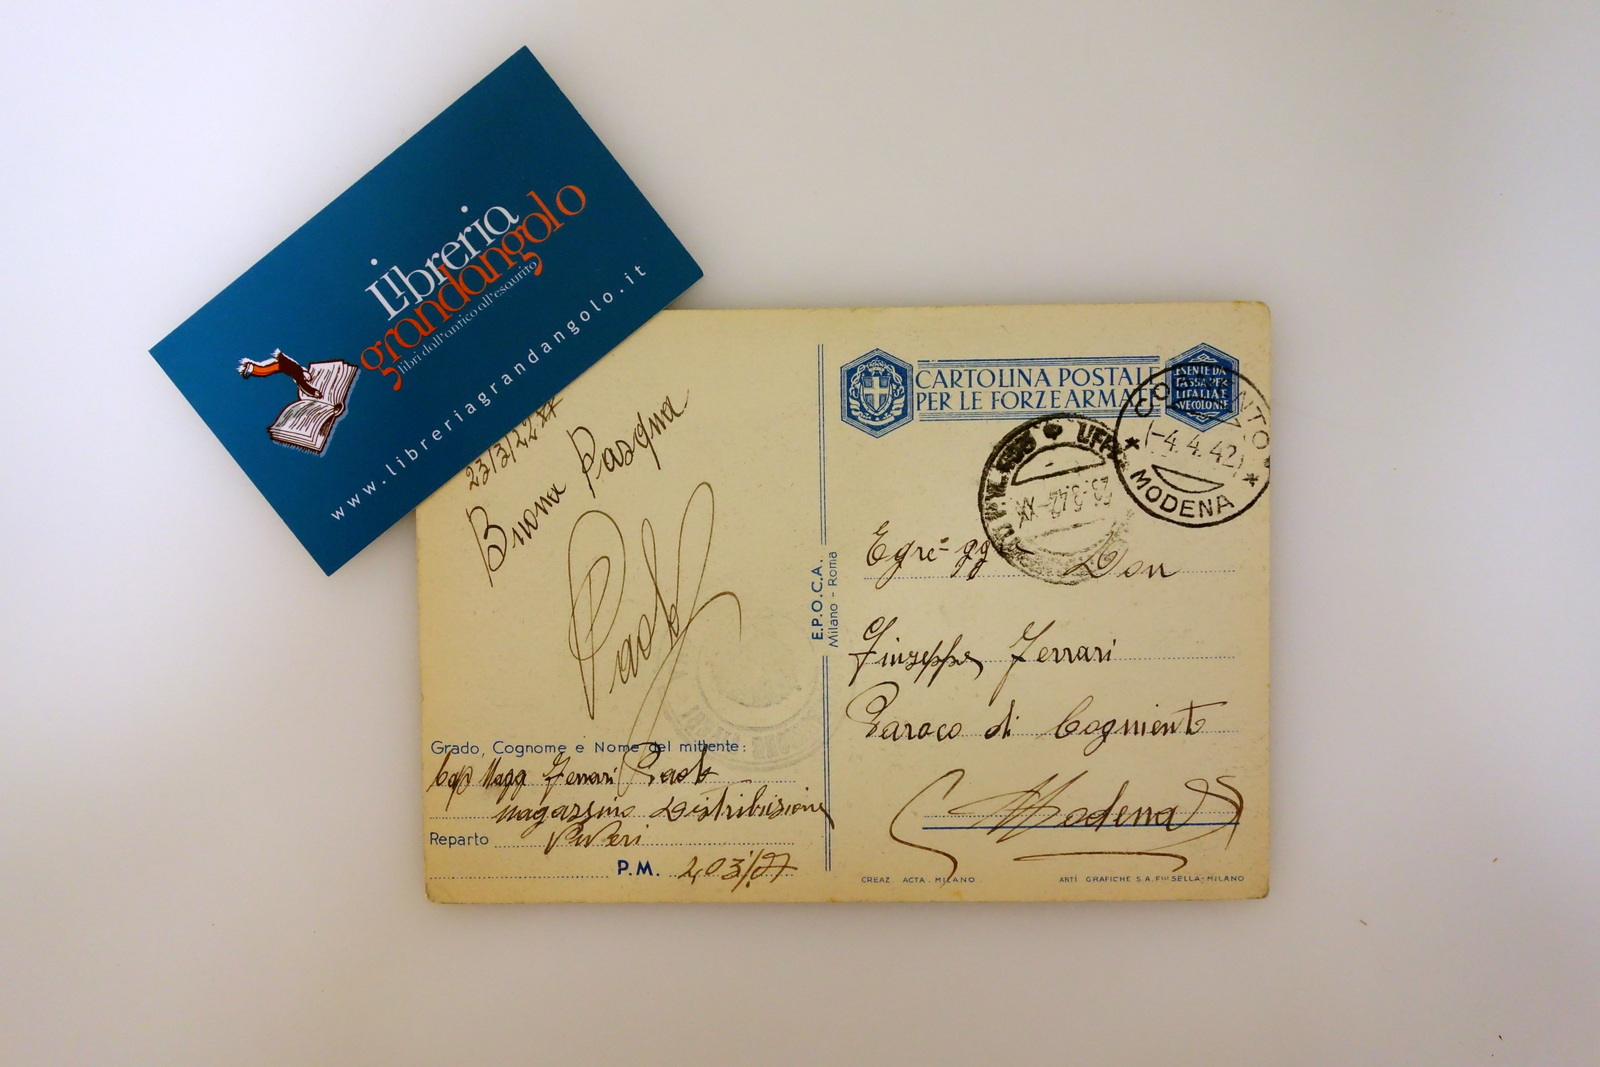 Libreria
grandangolo
libri dall'antico all'esaurito
www.libreriagrandangolo.it
Buona Pasqua
Paolo
Grado, Cognome e Nome del mittente:
Cap Magg Ferrari Paolo
magazzino Distribuzione
Reparto Viveri
P.M. 403/
E.P.O.C.A.
Milano - Roma
CARTOLINA POSTALE
PER LE FORZE ARMATE
ESENTE DA
TASSA PER
L'ITALIA E
-4.4.42
MODENA
Don
Giuseppe Ferrari
Paroco di Cogniento
Modena
CREAZ. ACTA. MILANO
ARTI GRAFICHE S.A. Flli SELLA-MILANO